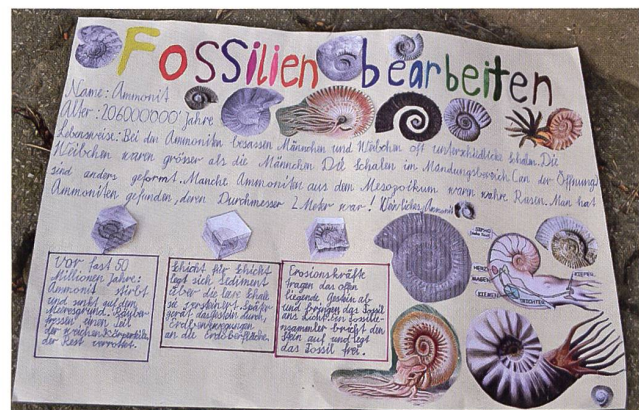 Fossilien bearbeiten
Name: Ammonit
Alter: 206000000 Jahre
Lebensweise: Bei den Ammoniten besassen Männchen und Weibchen oft unterschiedliche Schalen. Die
Weibchen waren grösser als die Männchen. Die Schalen im Mündungsbereich (an der Öffnung)
sind anders geformt. Manche Ammoniten aus dem Mesozoikum waren wahre Riesen. Man hat
Ammoniten gefunden, deren Durchmesser 2 Meter war! Weibliches Ammonit
Vor fast 50
Millionen Jahre:
Ammonit stirbt
und sinkt auf den
Meeresgrund.
fressen einen Teil
der weichen Körperteile,
der Rest verrottet.
Schicht für Schicht
legt sich Sediment
über die leere Schale
sie versteinert. Später
gerät das Gestein durch
Erdbewegungen
an die Erdoberfläche.
Erosionskräfte
tragen das offen
liegende Gestein ab
und bringen das Fossil
ans Licht. Ein Fossilien-
sammler bricht den
Stein auf und legt
das Fossil frei.
HERZ
MAGEN
KIEMEN
TRICHTER
KIEFER